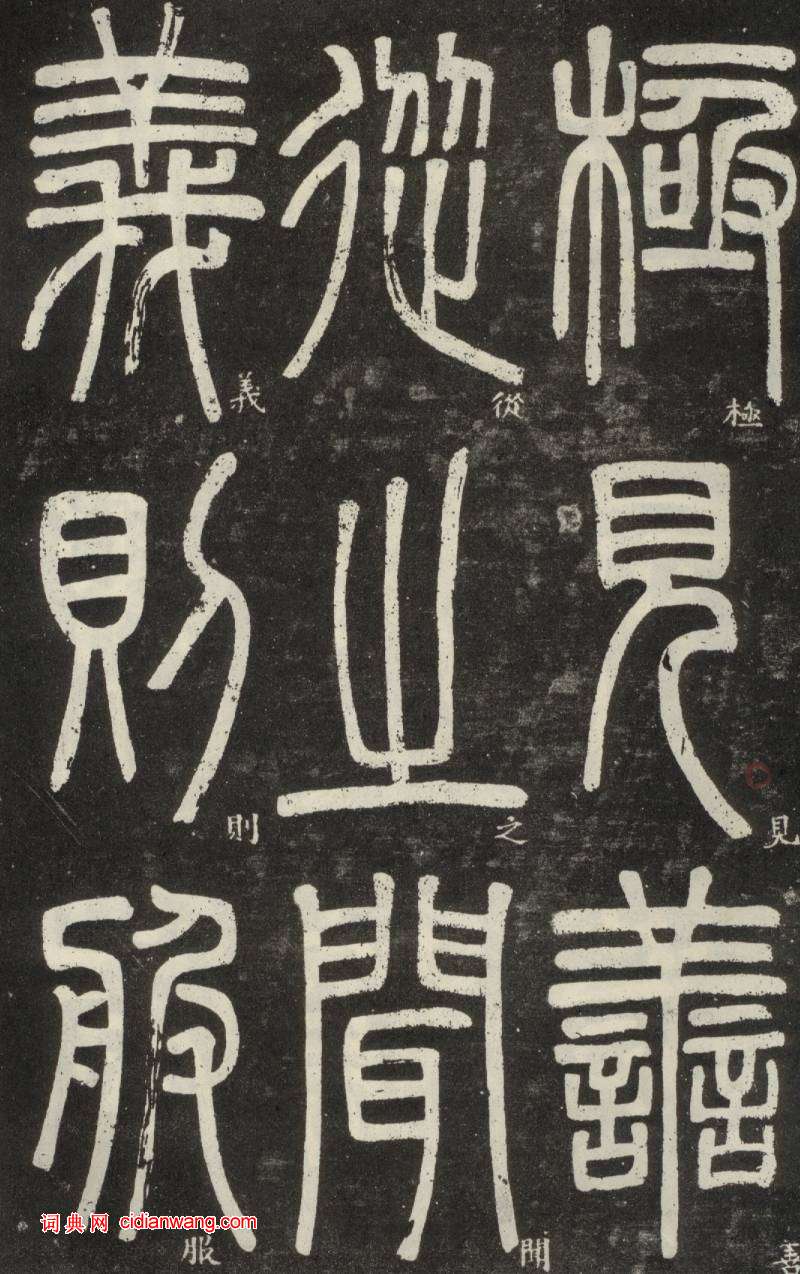 極見善
從之聞
義則服
極見善
從之聞
義則服
词典网 cidianwang.com